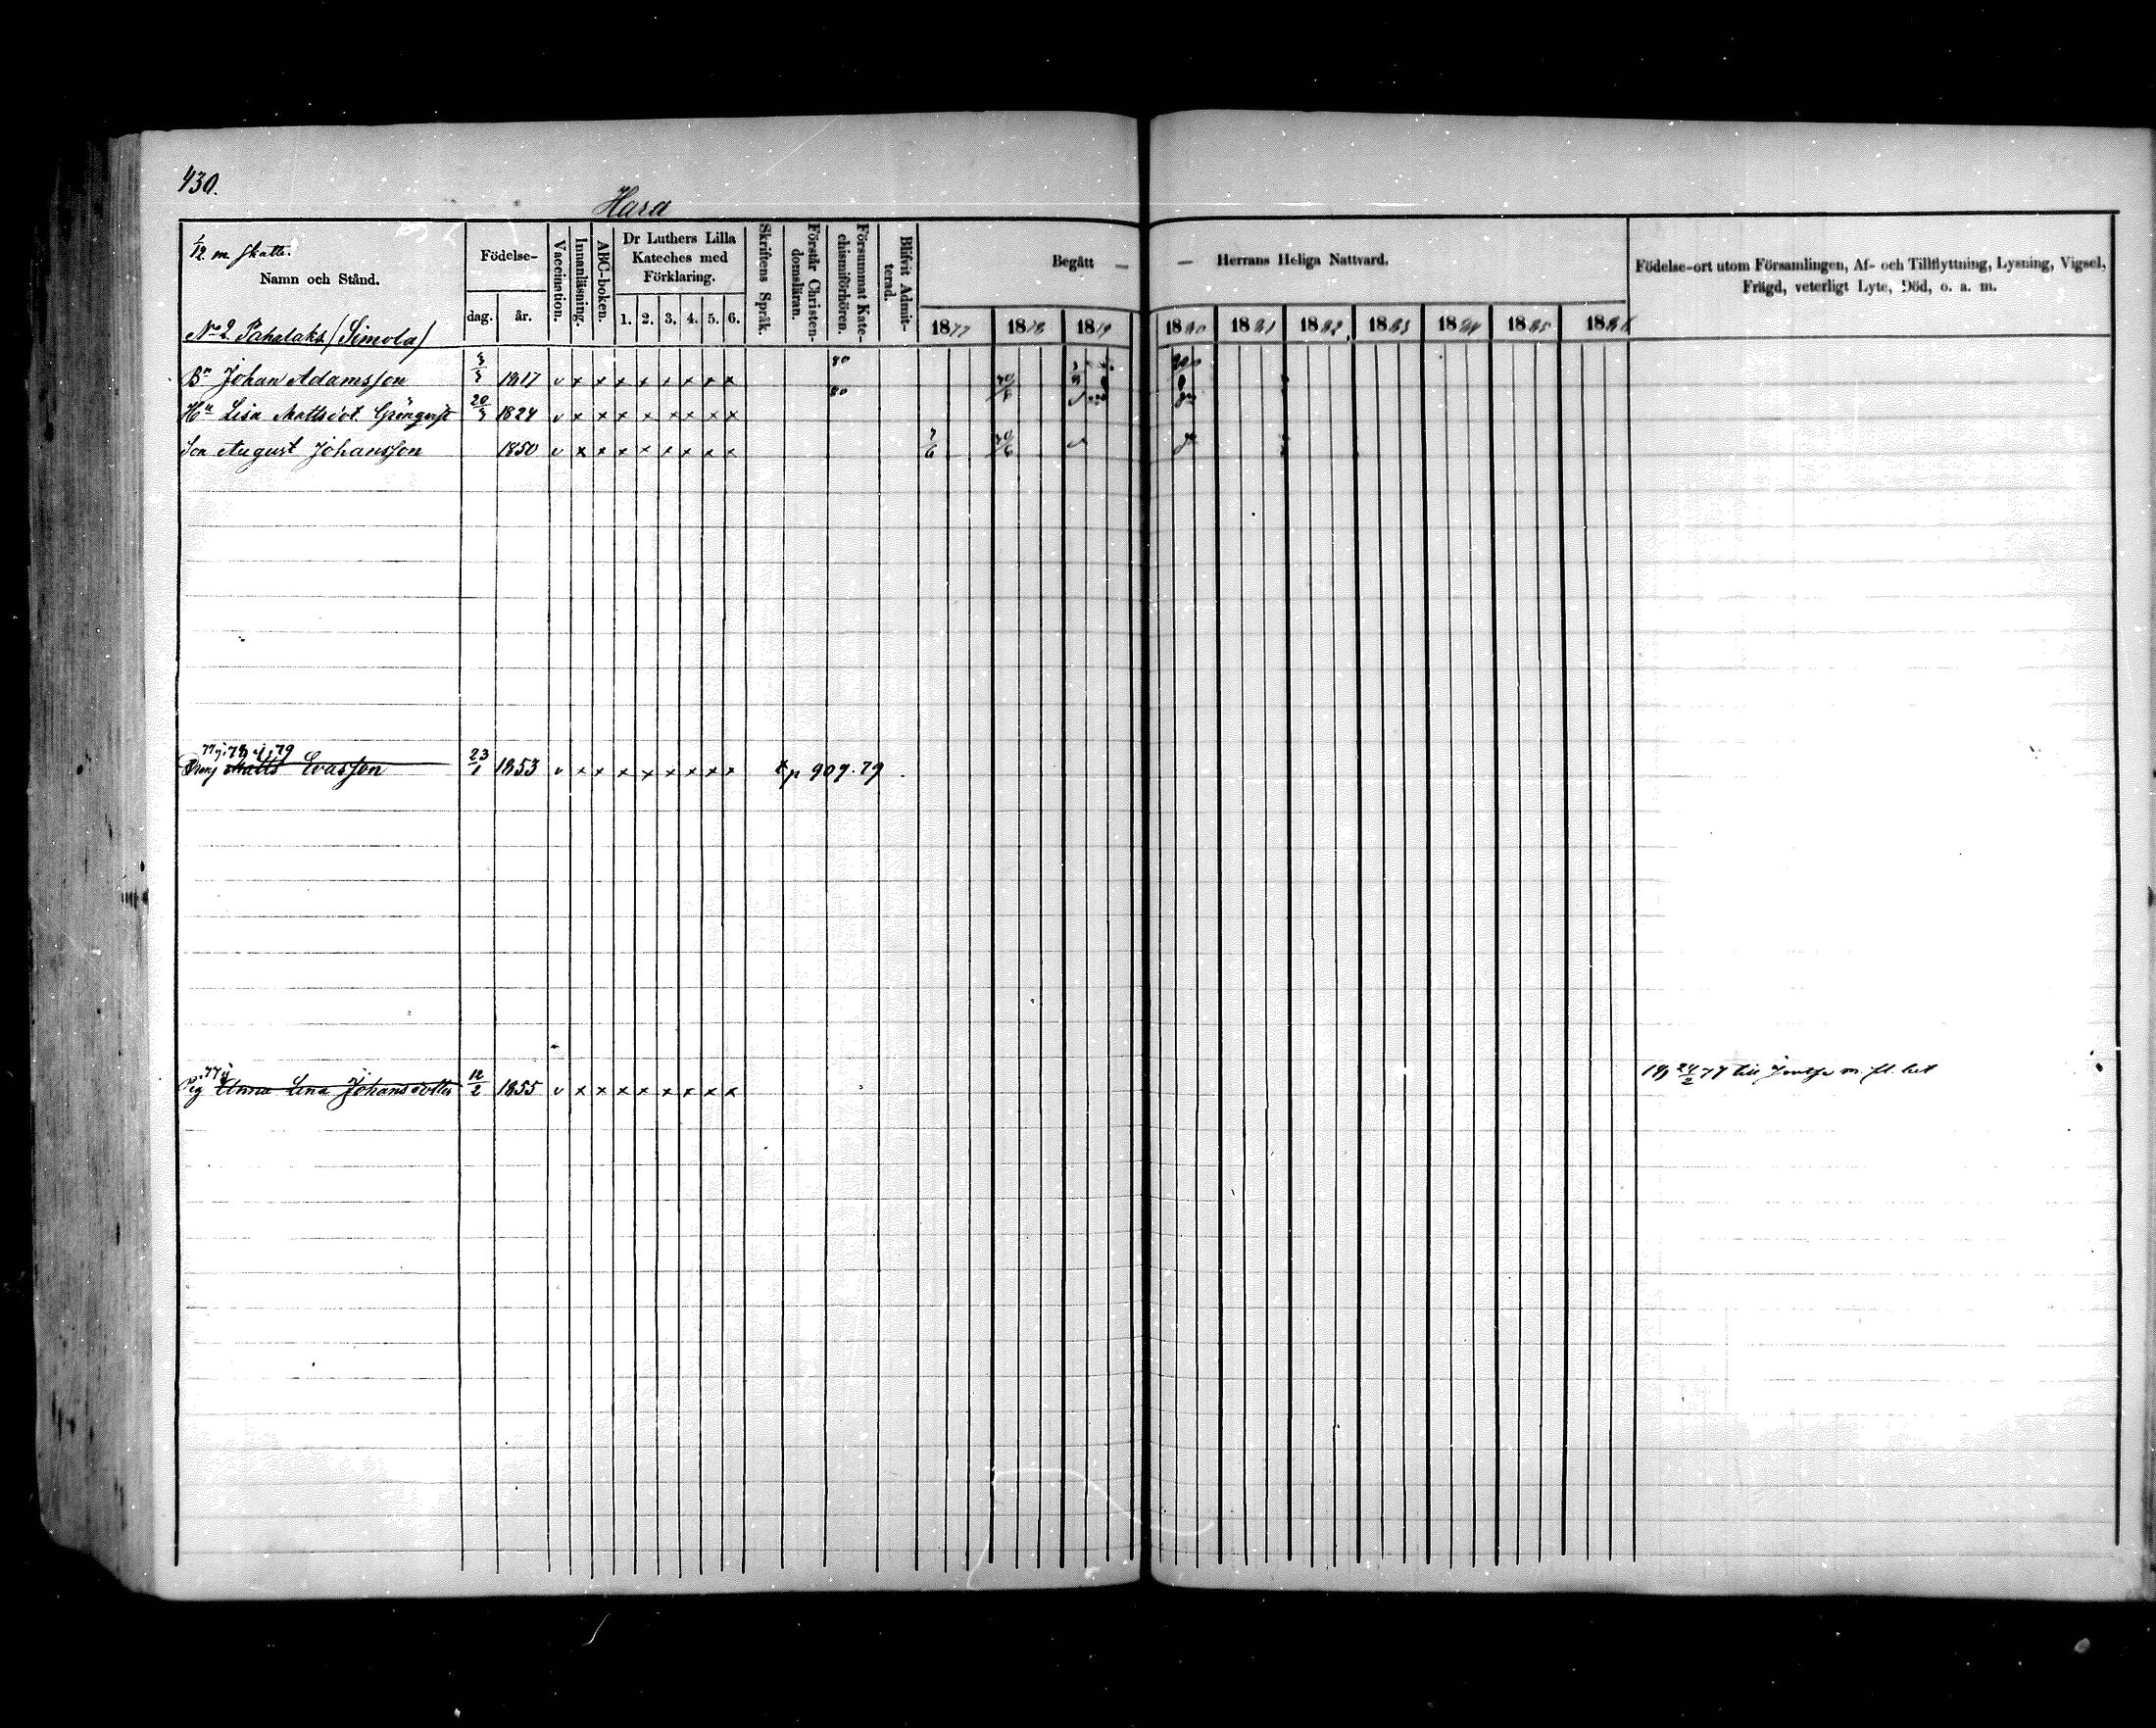 430.
Hara
1/12 m skatt.
Namn och Stånd.
Födelse-
dag.
år.
Vaccination.
Innanläsning.
ABC-boken.
Dr Luthers Lilla
Kateches med
Förklaring.
1. 2. 3. 4. 5. 6.
Skriftens Språk.
Förstår Christen-
domsläran.
Försummat Kate-
chismiförhören.
Blifvit Admit-
terad.
Begått —
— Herrans Heliga Nattvard.
1877 1878 1879 1880 1881 1882 1883 1884 1885 1886
Födelse-ort utom Församlingen, Af- och Tillflyttning, Lysning, Vigsel,
Frägd, veterligt Lyte, Död, o. a. m.
No 2 Pahalaks (Simola)
Bn Johan Adamsson 3/3 1817 v x x x x x x x x 80
Hu Lisa Mattsdot. Grönqvist 20/3 1824 v x x x x x x x x 80
Son August Johansson 1850 v x x x x x x x x 20/6
77 j. 78 j. 79
Dreng Matts Evasson 23/1 1853 v x x x x x x x x x p 907. 79
77 j
Pig Anna Lena Johansdotter 12/2 1855 v x x x x x x x x 24/2 77 till m. fl. bet